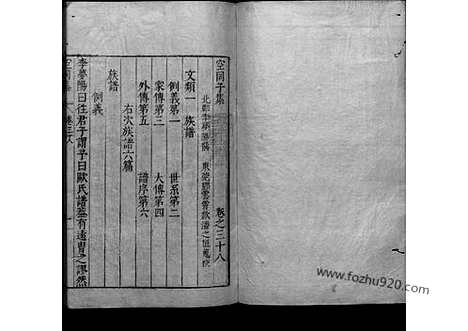 空同子集 卷之三十八
北郡李夢陽撰 東莞鄧雲霄
文類一 族譜
例義第一 世系第二
家傳第三 大傳第四
外傳第五 譜序第六
右次族譜六篇
族譜
例義
李夢陽曰往君子謂予曰歐氏譜蓋有遠冑之謬然
空同集 卷三十八
www.fozhu920.com